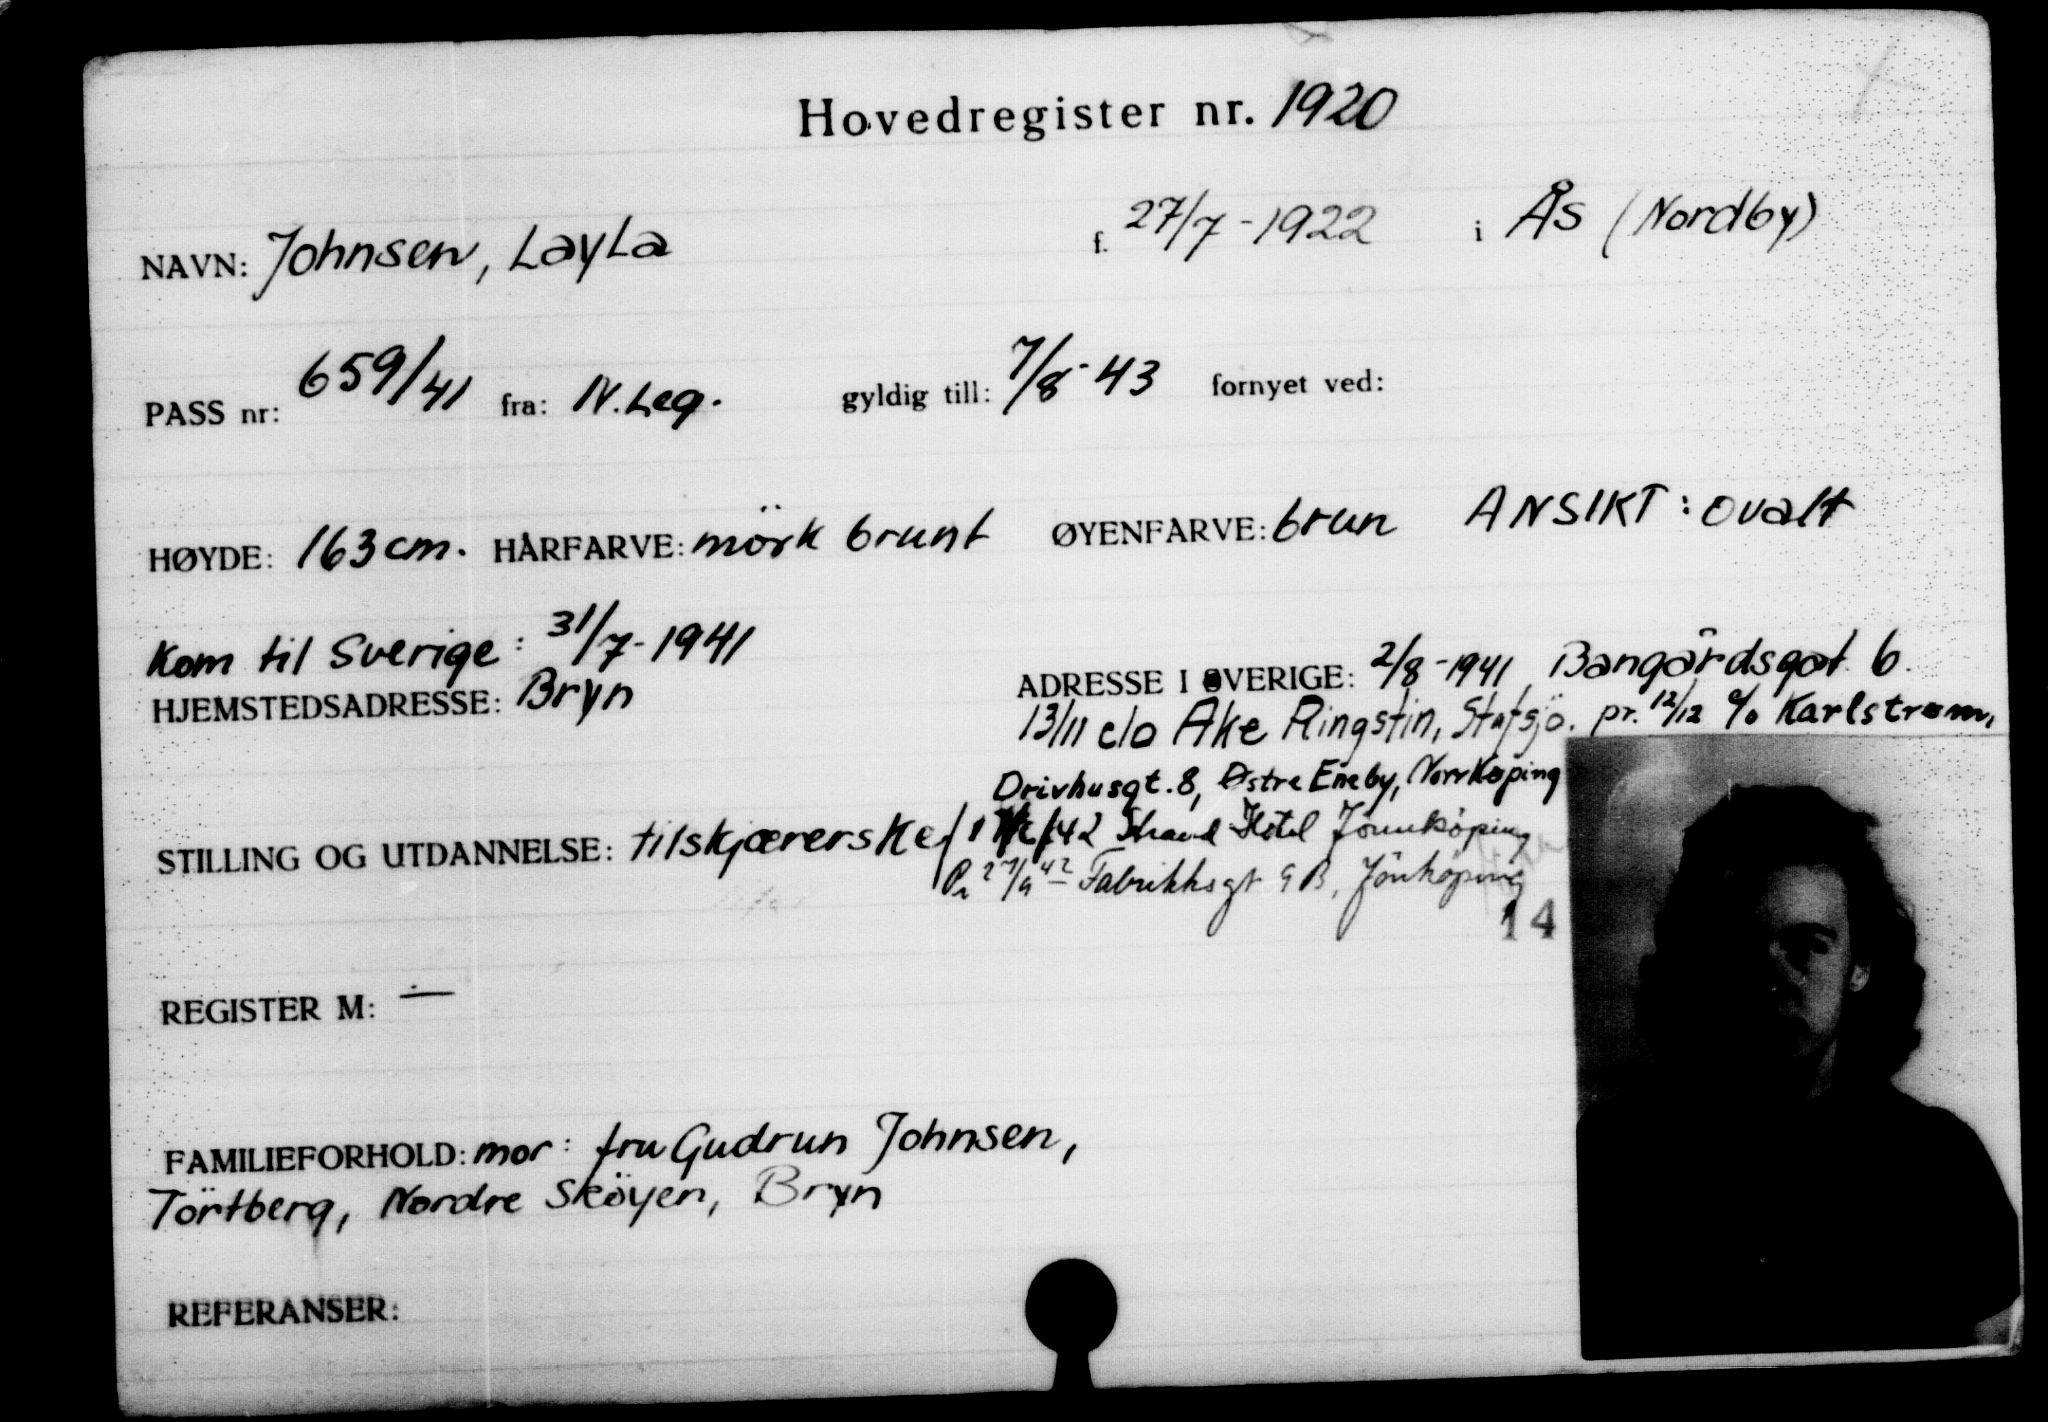 Hovedregister nr. 1920
NAVN: Johnsen, Layla f. 27/7-1922 i Ås (Nordby)
PASS nr: 659/41 fra: N. Leg. gyldig till: 7/8-43 fornyet ved:
HØYDE: 163 cm. HÅRFARVE: mörk brunt ØYENFARVE: brun ANSIKT: ovalt
Kom til Sverige: 31/7-1941
HJEMSTEDSADRESSE: Bryn
ADRESSE I SVERIGE: 2/8-1941 Bangårdsgat 6.
13/11 c/o Åke Ringstin, Stafsjö. pr. 12/12 c/o Karlstrøm,
Drivhusgt. 8, Østre Eneby, Norrkøping
STILLING OG UTDANNELSE: tilskjærerske
/42 Strand Hotel Jönnköping
Pr 27/9 42 Fabrikksgt 9 B, Jönköping
14
REGISTER M: —
FAMILIEFORHOLD: mor: fru Gudrun Johnsen,
Törtberg, Nordre Sköyen, Bryn
REFERANSER: